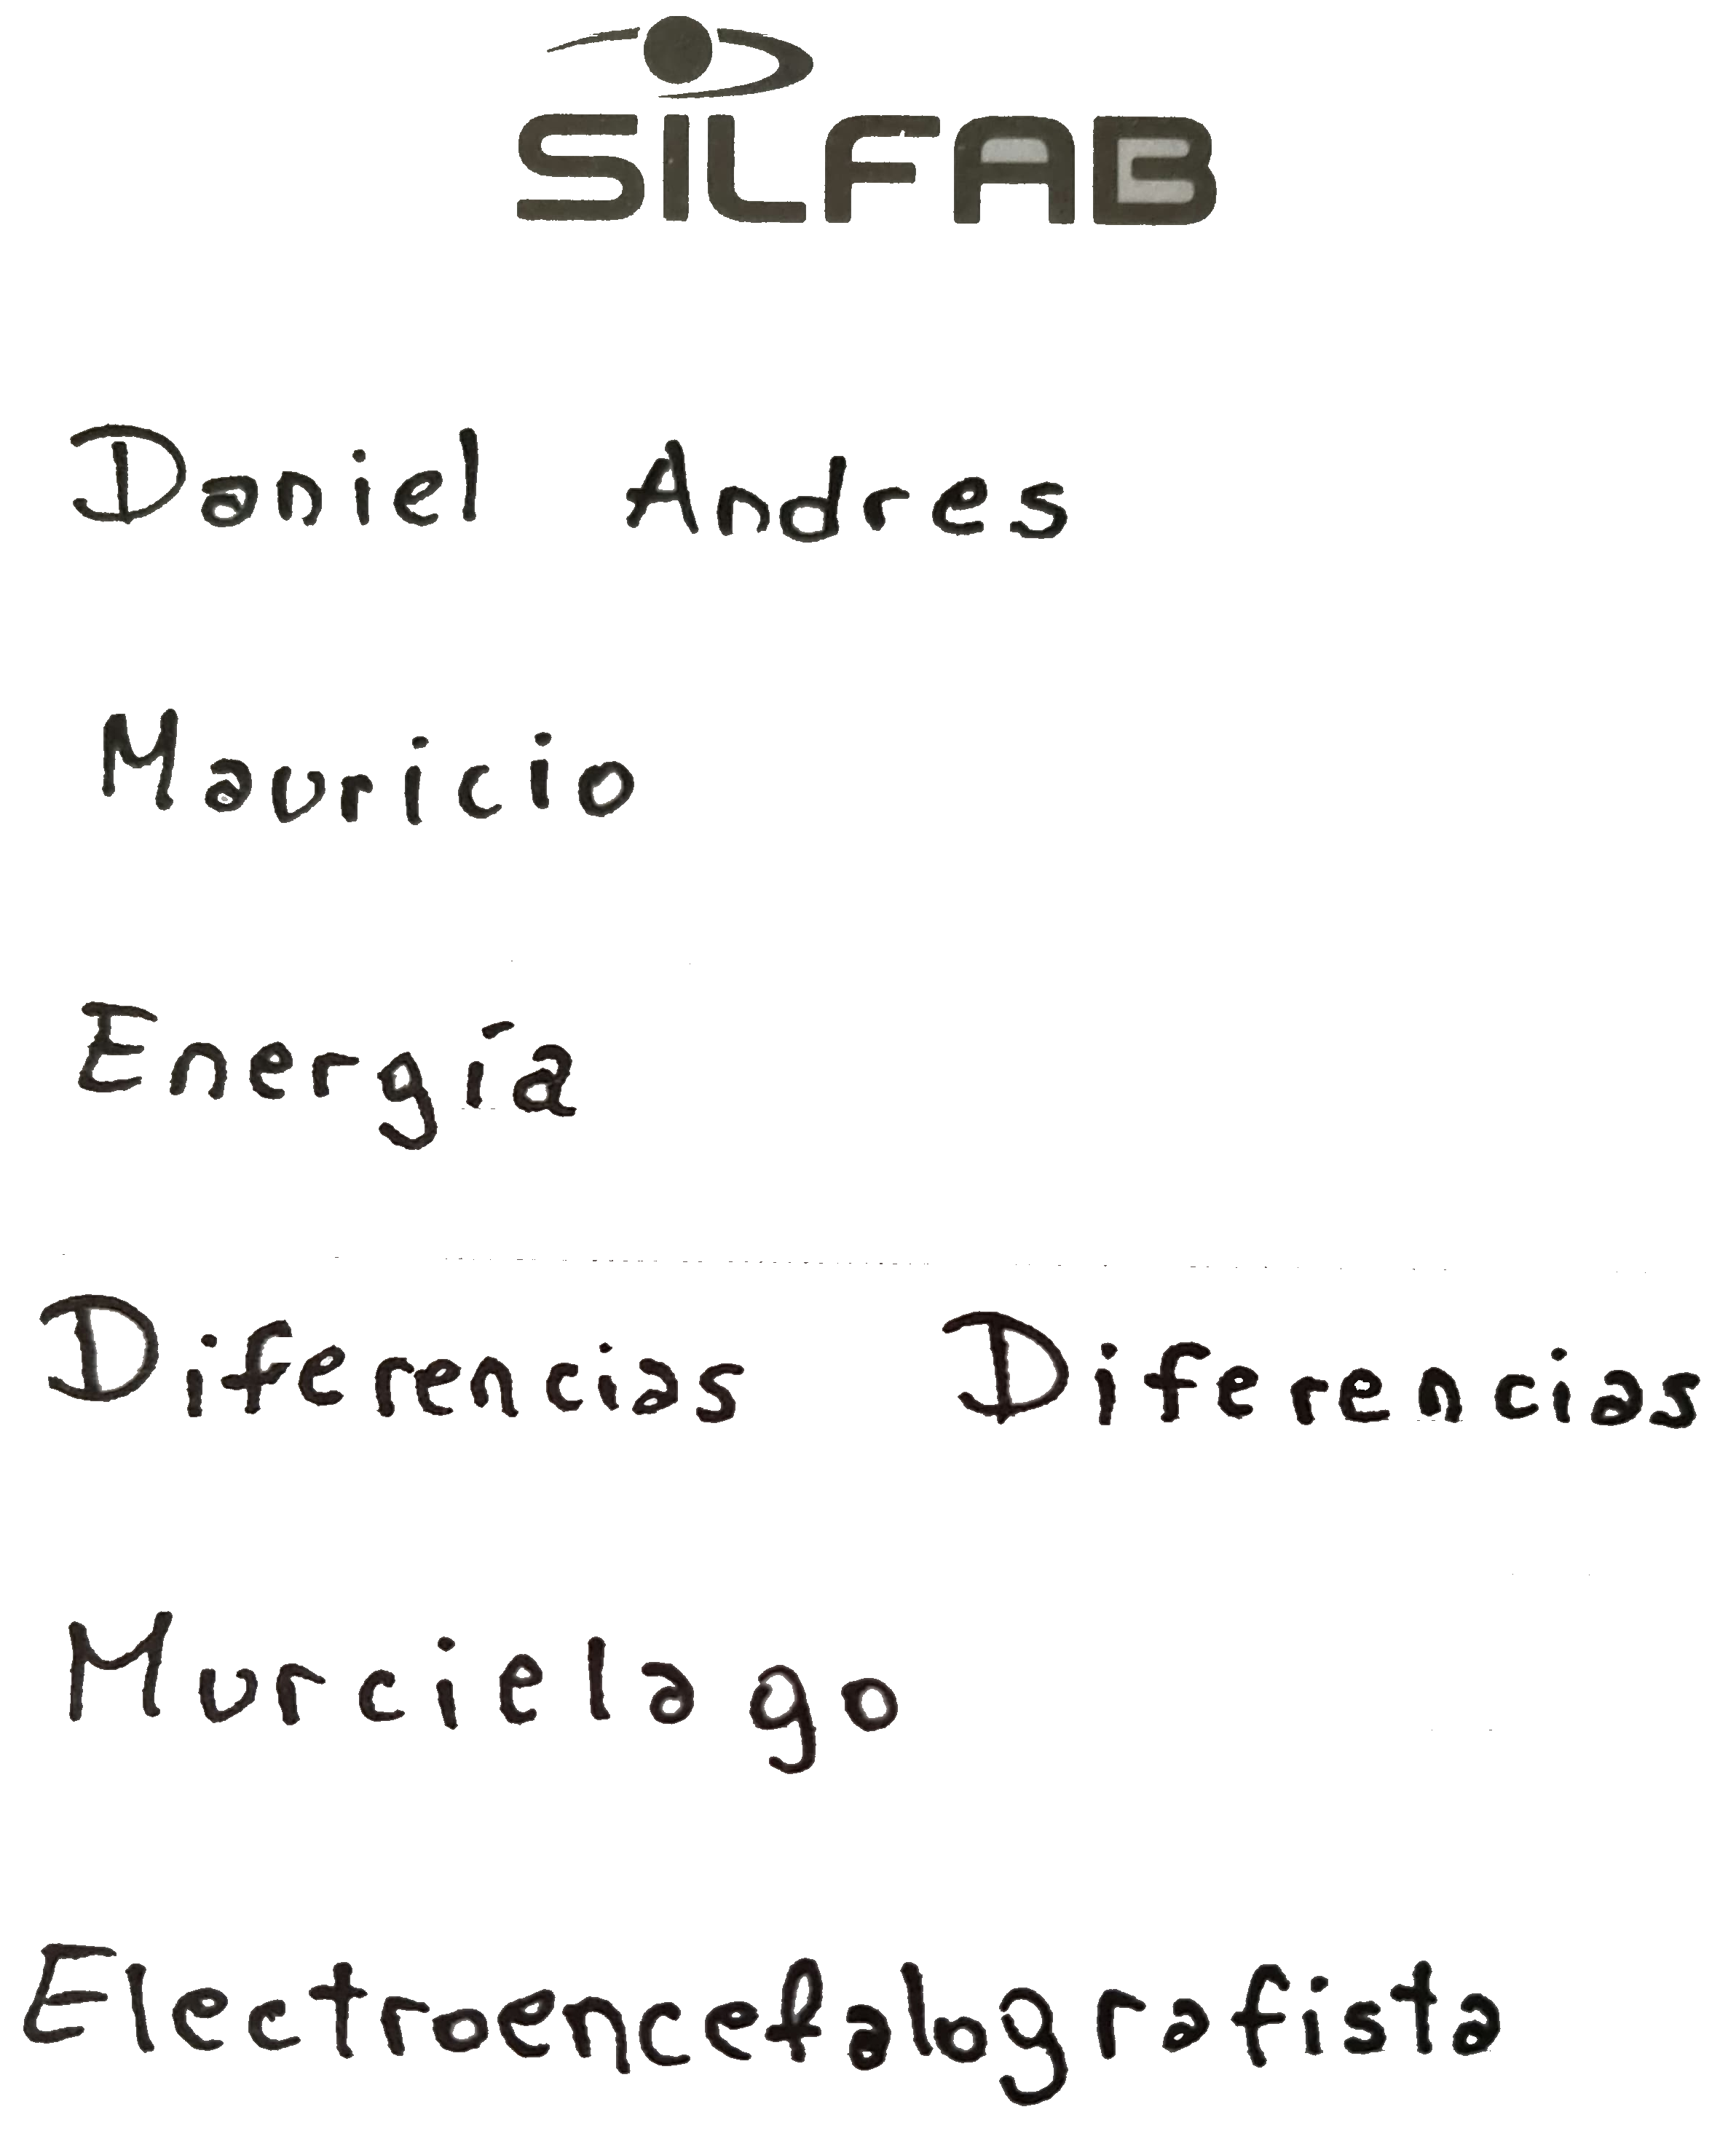 SILFAB
Daniel Andres
Mauricio
Energía
Diferencias Diferencias
Murcielago
Electroencefalografista